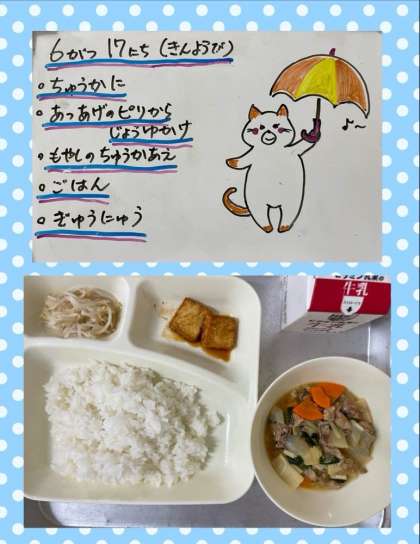 6がつ 17にち (きんようび)
。ちゅうかに
。あつあげのピリから
じょうゆかけ
。もやしのちゅうかあえ
。ごはん
。ぎゅうにゅう
♪〜
牛乳